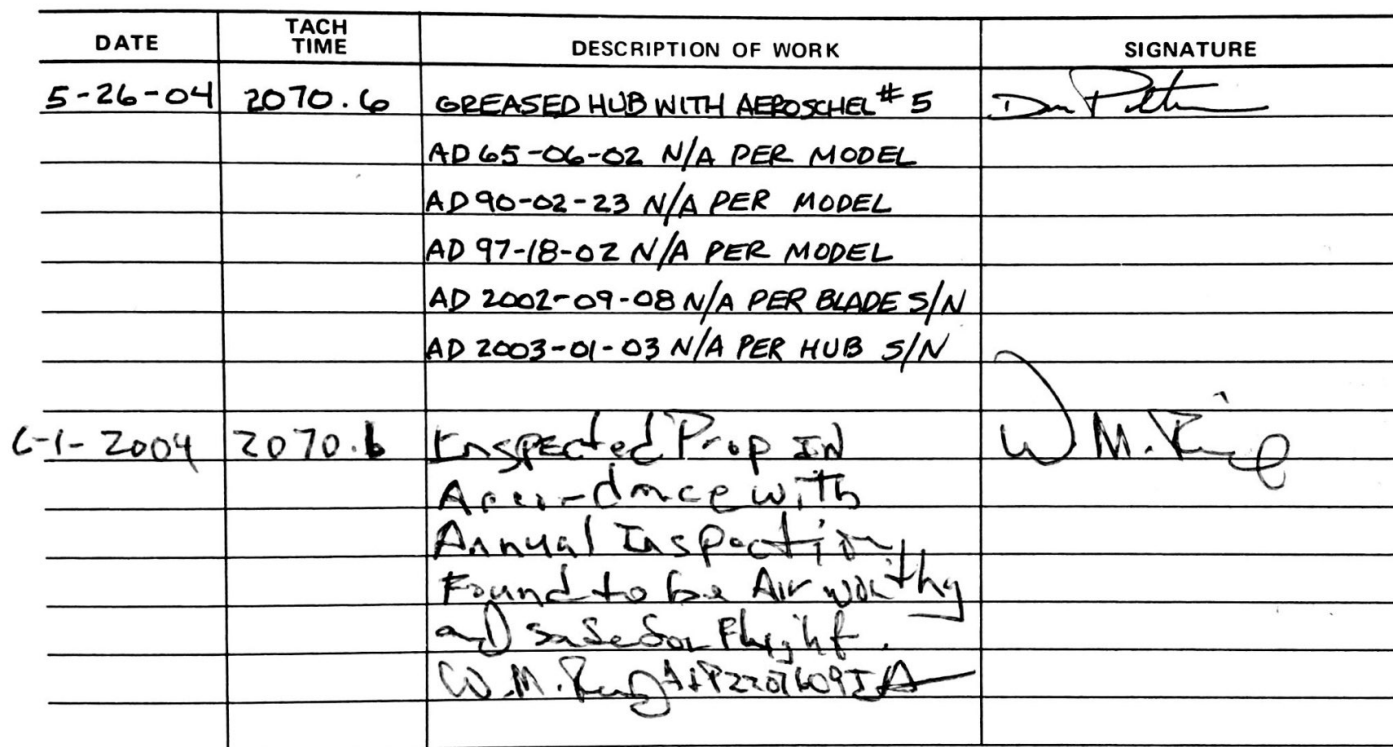 DATE TACH TIME DESCRIPTION OF WORK SIGNATURE
5-26-04 2070.6 GREASED HUB WITH AEROSCHEL #5
AD 65-06-02 N/A PER MODEL
AD 90-02-23 N/A PER MODEL
AD 97-18-02 N/A PER MODEL
AD 2002-09-08 N/A PER BLADE S/N
AD 2003-01-03 N/A PER HUB S/N
6-1-2004 2070.6 Inspected Prop IN W.M.
Accordance with
Annual Inspection
Found to be Airworthy
and Safe for Flight.
W.M.